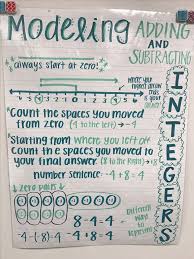 Modeling ADDING
AND
SUBTRACTING
INTEGERS
*always start at zero!
where your
is your
*Count the spaces you moved
from zero (4 to the left) → -4
*Starting from where you left off
count the spaces you moved to
your final answer. (8 to the right) → +8
number sentence -4+8=4
*zero pairs
8-4=4
Different
ways
to
represent
-4-(-8)=4
-4+8=4